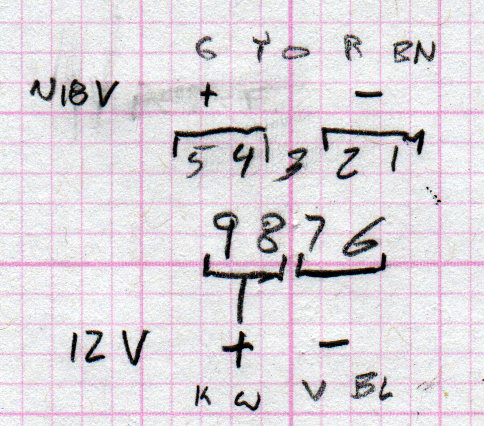 G Y O R BN
N18V + -
5 4 3 2 1
9 8 7 6
12 V + -
K W V BL